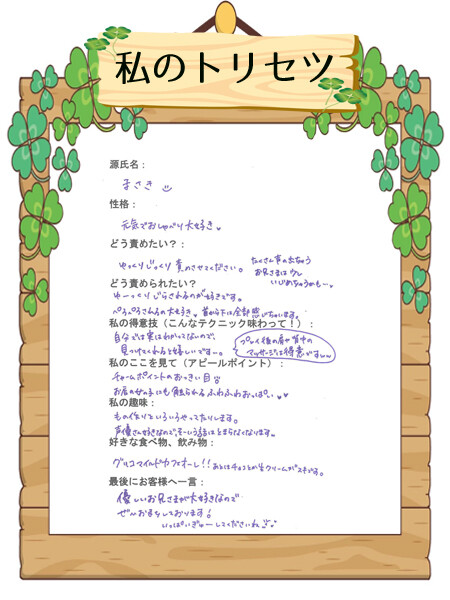 私のトリセツ
源氏名：
まさき
性格：
元気でおしゃべり大好き
どう責めたい？：
ゆっくりじっくり責めさせてください。
たくさん声の出ちゃう
お兄さまは
いじめちゃうかも〜
どう責められたい？：
ゆーっくりじらされるのが好きです。
ぺろぺろされるの大好き 首から下は全部感じちゃいます。
私の得意技（こんなテクニック味わって！）：
自分では実はわかってないので、
見つけてくれると嬉しいですー。
プレイ後の肩や背中の
マッサージは得意ですw
私のここを見て（アピールポイント）：
チャームポイントのおっきい目
お店の女の子にも触られるふわふわおっぱい
私の趣味：
もの作りといろいろやってたりします。
声優さん好きなので、そーいう話はとまらなくなります。
好きな食べ物、飲み物：
グリコマイルドカフェオーレ!! あとはチョコとか生クリームがスキです。
最後にお客様へ一言：
優しいお兄さまが大好きなので
ぜひお待ちしております！
いっぱいぎゅーしてくださいね